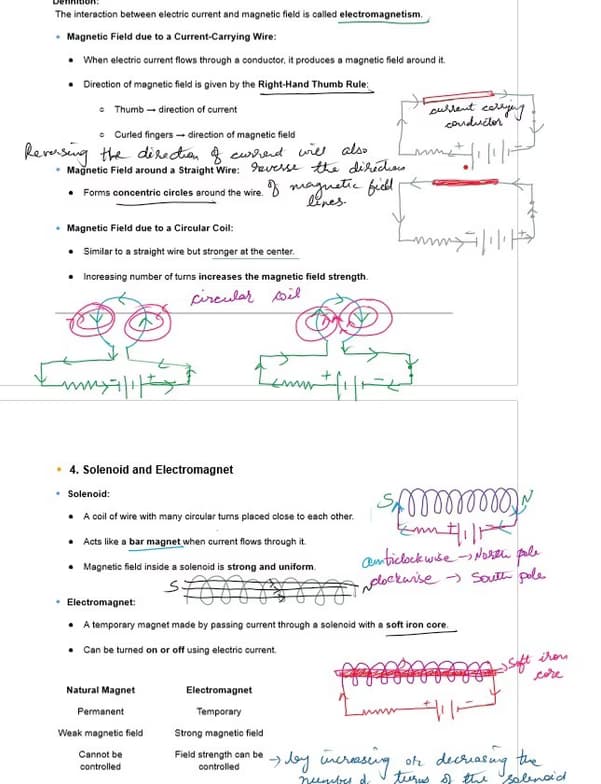 Definition:
The interaction between electric current and magnetic field is called electromagnetism.
• Magnetic Field due to a Current-Carrying Wire:
• When electric current flows through a conductor, it produces a magnetic field around it.
• Direction of magnetic field is given by the Right-Hand Thumb Rule:
○ Thumb → direction of current
current carrying
conductor
○ Curled fingers → direction of magnetic field
Reversing the direction of current will also
reverse the direction
of magnetic field
lines.
• Magnetic Field around a Straight Wire:
• Forms concentric circles around the wire.
• Magnetic Field due to a Circular Coil:
• Similar to a straight wire but stronger at the center.
• Increasing number of turns increases the magnetic field strength.
circular coil
• 4. Solenoid and Electromagnet
• Solenoid:
S N
• A coil of wire with many circular turns placed close to each other.
• Acts like a bar magnet when current flows through it.
anticlockwise → North pole
• Magnetic field inside a solenoid is strong and uniform.
clockwise → South pole
S N
• Electromagnet:
• A temporary magnet made by passing current through a solenoid with a soft iron core.
• Can be turned on or off using electric current.
→ Soft iron
core
Natural Magnet Electromagnet
Permanent Temporary
Weak magnetic field Strong magnetic field
Cannot be controlled Field strength can be controlled
→ by increasing or decreasing the
number of turns of the solenoid